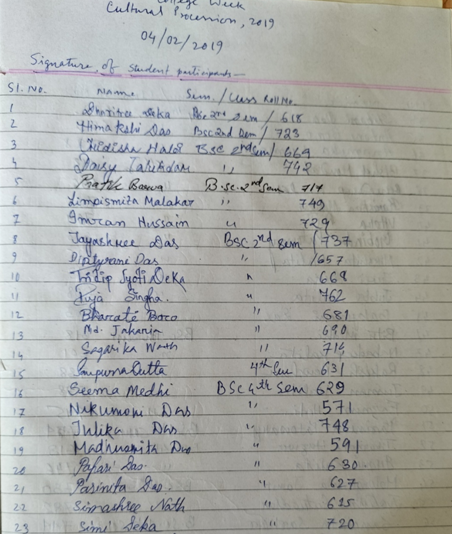 College Week
Cultural Procession, 2019
04/02/2019
Signature of student participants—
Sl. No. Name Sem./Class Roll No.
1 Deka Bsc 2nd sem / 618
2 Himakshi Das Bsc 2nd sem / 723
3 BSC 2nd sem / 669
4 Daisy Talukdar ,, 742
5 Pratik Barua B.sc. 2nd sem 714
6 Limpismita Malakar ,, 749
7 Imran Hussain ,, 729
8 Jayashree Das BSC 2nd sem / 737
9 Diptyrani Das ,, / 657
10 Jyoti Deka ,, 668
11 Puja Singha. ,, 762
12 Bharati Boro ,, 681
13 Md. Jakaria ,, 690
14 Sagarika Nath ,, 714
15 Dutta 4th Sem 631
16 Seema Medhi BSC 4th sem 629
17 Nikumoni Das ,, 571
18 Julika Das ,, 748
19 Madhusmita Das ,, 591
20 Papari Das. ,, 630
21 Parinita Das. ,, 627
22 Simashree Nath ,, 615
23 Simi Deka ,, 720